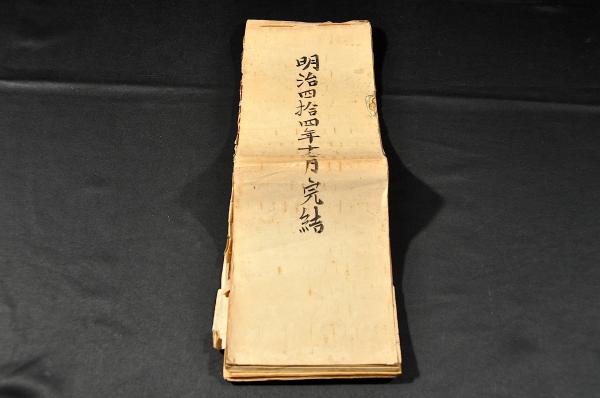 明治四拾四年十二月完結